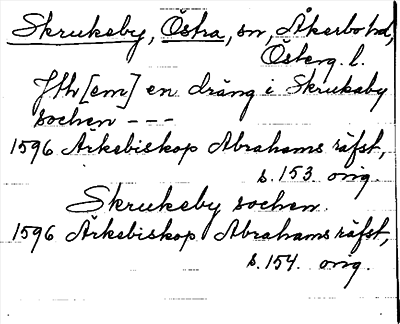 Skrukeby, Östra, sn, Åkerbo hd,
Österg. l.
Jth [em] en dräng i Skrukaby
sochen - - -
1596 Ärkebiskop Abrahams räfst,
s. 153 orig.
Skrukeby sochen.
1596 Ärkebiskop Abrahams räfst,
s. 154. orig.